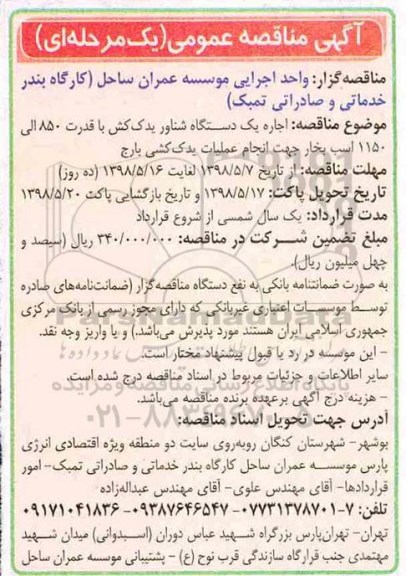 آگهی مناقصه عمومی(یک‌مرحله‌ای)
مناقصه‌گزار: واحد اجرایی موسسه عمران ساحل (کارگاه بندر
خدماتی و صادراتی تمبک)
موضوع مناقصه: اجاره یک دستگاه شناور یدک‌کش با قدرت ۸۵۰ الی
۱۱۵۰ اسب بخار جهت انجام عملیات یدک‌کشی بارج
مهلت مناقصه: از تاریخ ۱۳۹۸/۵/۷ لغایت ۱۳۹۸/۵/۱۶ (ده روز)
تاریخ تحویل پاکت: ۱۳۹۸/۵/۱۷ و تاریخ بازگشایی پاکت ۱۳۹۸/۵/۲۰
مدت قرارداد: یک سال شمسی از شروع قرارداد
مبلغ تضمین شرکت در مناقصه: ۳۴۰/۰۰۰/۰۰۰ ریال (سیصد و
چهل میلیون ریال).
به صورت ضمانتنامه بانکی به نفع دستگاه مناقصه‌گزار (ضمانت‌نامه‌های صادره
توسط موسسات اعتباری غیربانکی که دارای مجوز رسمی از بانک مرکزی
جمهوری اسلامی ایران هستند مورد پذیرش می‌باشد.) و یا واریز وجه نقد.
- این موسسه در رد یا قبول پیشنهاد مختار است.
سایر اطلاعات و جزئیات مربوط در اسناد مناقصه درج شده است.
- هزینه درج آگهی برعهده برنده مناقصه می‌باشد.
آدرس جهت تحویل اسناد مناقصه:
بوشهر- شهرستان کنگان روبه‌روی سایت دو منطقه ویژه اقتصادی انرژی
پارس موسسه عمران ساحل کارگاه بندر خدماتی و صادراتی تمبک- امور
قراردادها- آقای مهندس علوی- آقای مهندس عبداله‌زاده
تلفن: ۷-۰۷۷۳۱۳۷۸۷۰۱-۰۹۳۸۷۶۴۶۵۴۷-۰۹۱۷۱۰۴۱۸۳۶
تهران- تهران‌پارس بزرگراه شهید عباس دوران (استخر) میدان شهید
مهتمدی جنب قرارگاه سازندگی قرب نوح (ع) - پشتیبانی موسسه عمران ساحل